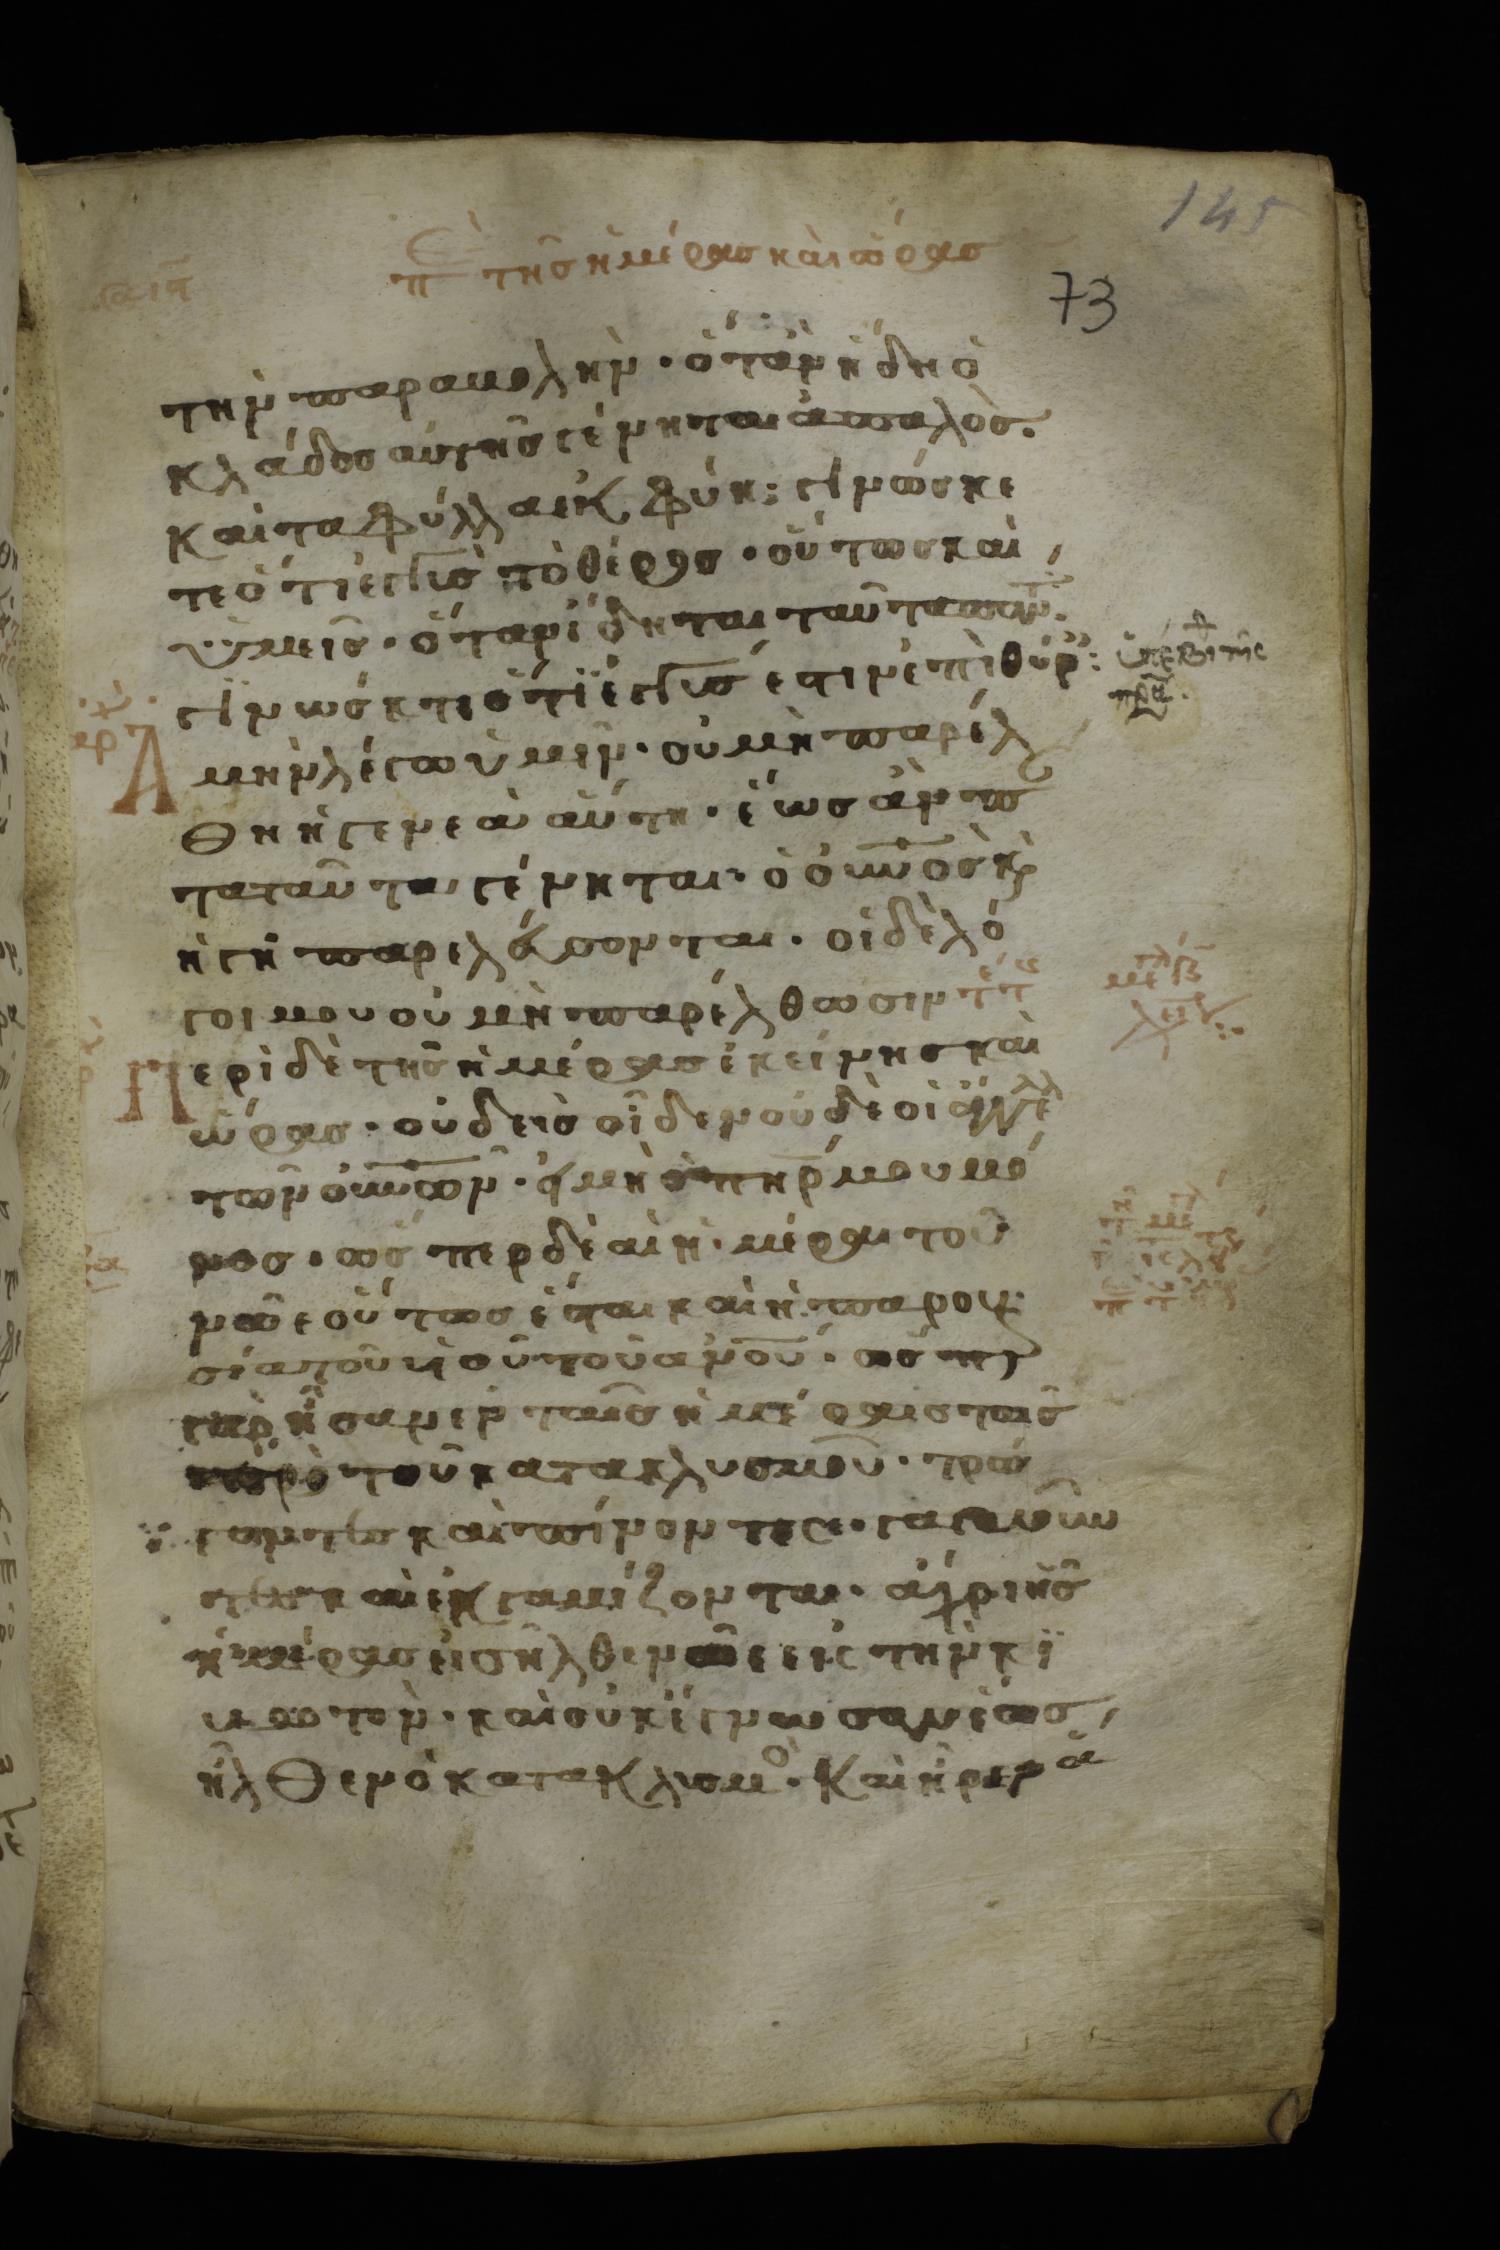 145
περὶ τῆς ἡμέρας καὶ ὥρας
73
τὴν παραβολήν · ὅταν ἤδη ὁ
κλάδος αὐτῆς γένηται ἁπαλὸς ·
καὶ τὰ φύλλα ἐκφύη : γινώσκε
τε ὅτι ἐγγὺς τὸ θέρος · οὕτως καὶ
ὑμεῖς · ὅταν ἴδηται ταῦτα παντ
γινώσκετε ὅτι ἐγγύς ἐστιν ἐπὶ θύρ :
Ἀμὴν λέγω ὑμῖν · οὐ μὴ παρέλ
θη ἡ γενεὰ αὕτη · ἕως ἂν πάν
τα ταῦτα γένηται · ὁ οὐνος κ
ἡ γῆ παρελεύσονται · οἱ δὲ λό
γοι μου οὐ μὴ παρέλθωσιν τε
Περὶ δὲ τῆς ἡμέρας ἐκείνης καὶ
ὥρας · οὐδεὶς οἶδεν οὐδὲ οἱ ἄγγελ
τῶν οὐνῶν · εἰ μὴ ὁ πηρ μου μό
νος · ὥσπερ δὲ αἱ ἡμέραι τοῦ
νῶε οὕτως ἔσται καὶ ἡ παρου
σία τοῦ υἱοῦ τοῦ ανου · ὥσπερ
γὰρ ἦσαν ἐν ταῖς ἡμέραις ταῖς
πρὸ τοῦ κατακλυσμοῦ · τρώ
γοντες καὶ πίνοντες · γαμοῦν
τες καὶ ἐκγαμίζονται · ἄχρι ἧς
ἡμέρας εἰσῆλθεν νῶε εἰς τὴν κι
βωτὸν · καὶ οὐκ ἔγνωσαν ἕως
ἦλθεν ὁ κατακλυσμὸ · καὶ ἦρεν ἅ